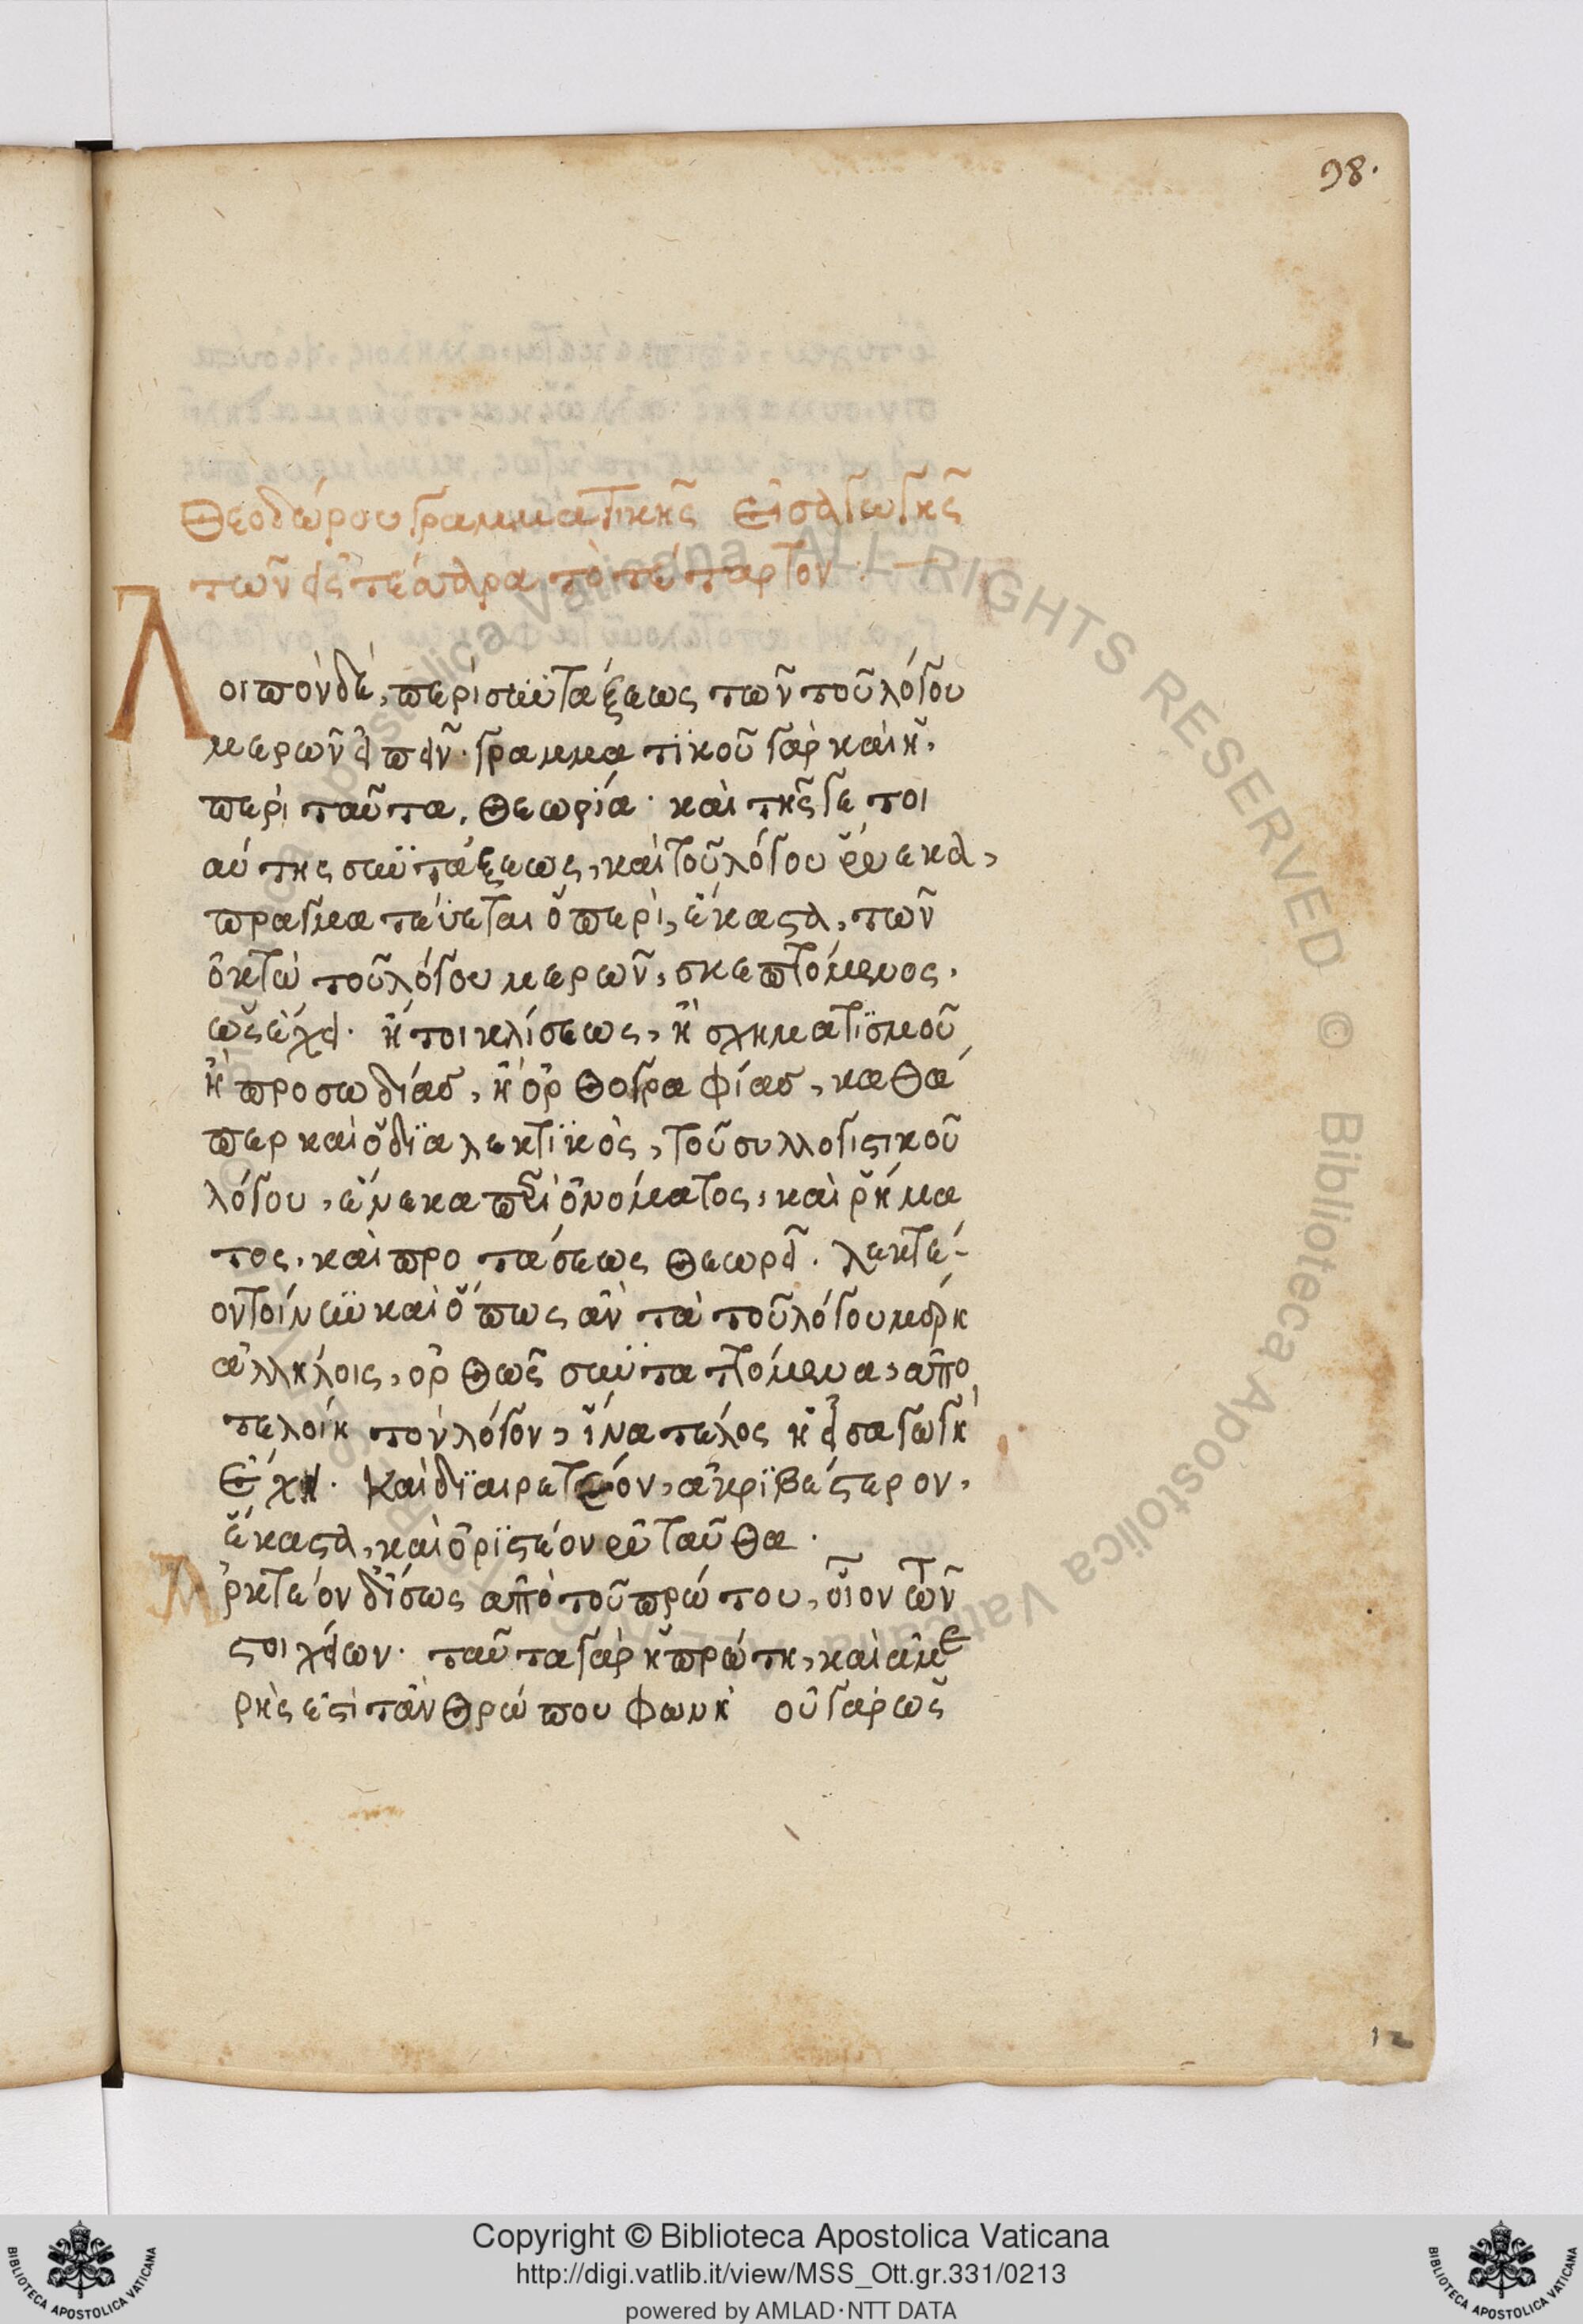 98.
Θεοδώρου γραμματικῆς εἰσαγωγῆς
τῶν εἰς τέσσαρα τὸ τέταρτον :
Λοιπὸν δὲ, περὶ συντάξεως τῶν τοῦ λόγου
μερῶν εἰπεῖν· γραμματικοῦ γὰρ καὶ ἡ,
περὶ ταῦτα, θεωρία· καὶ τῆς γε τοι
αύτης συντάξεως, καὶ τοῦ λόγου ἕνεκα,
πραγματεύεται ὁ περὶ, ἕκαστα, τῶν
ὀκτὼ τοῦ λόγου μερῶν, σκεπτόμενος,
ὡς ἔχει. ἤτοι κλίσεως, ἢ σχηματισμοῦ
ἢ προσῳδίας, ἢ ὀρθογραφίας, καθά
περ καὶ ὁ διαλεκτικὸς, τοῦ συλλογιστικοῦ
λόγου, ἕνεκα περὶ ὀνόματος, καὶ ῥήμα
τος, καὶ προτάσεως θεωρεῖ. λεκτέ-
ον τοίνυν καὶ ὅπως ἂν τὰ τοῦ λόγου μόρια
ἀλλήλοις, ὀρθῶς συνταττόμενα, ἀπο
τελοίη τὸν λόγον, ἵνα τέλος ἡ εἰσαγωγὴ
ἔχῃ. Καὶ διαιρετέον, ἀκριβέστερον,
ἕκαστα, καὶ ὁριστέον ἐνταῦθα.
Ἀρκτέον δ' ἴσως ἀπὸ τοῦ πρώτου, οἷον τῶν
στοιχείων. ταῦτα γὰρ ἡ πρώτη, καὶ ἀμε
ρής ἐστι τἀνθρώπου φωνὴ οὐ γὰρ ὡς
12
Biblioteca Apostolica Vaticana ALL RIGHTS RESERVED © Biblioteca Apostolica Vaticana
Copyright © Biblioteca Apostolica Vaticana
http://digi.vatlib.it/view/MSS_Ott.gr.331/0213
powered by AMLAD·NTT DATA
BIBLIOTECA APOSTOLICA VATICANA
BIBLIOTECA APOSTOLICA VATICANA